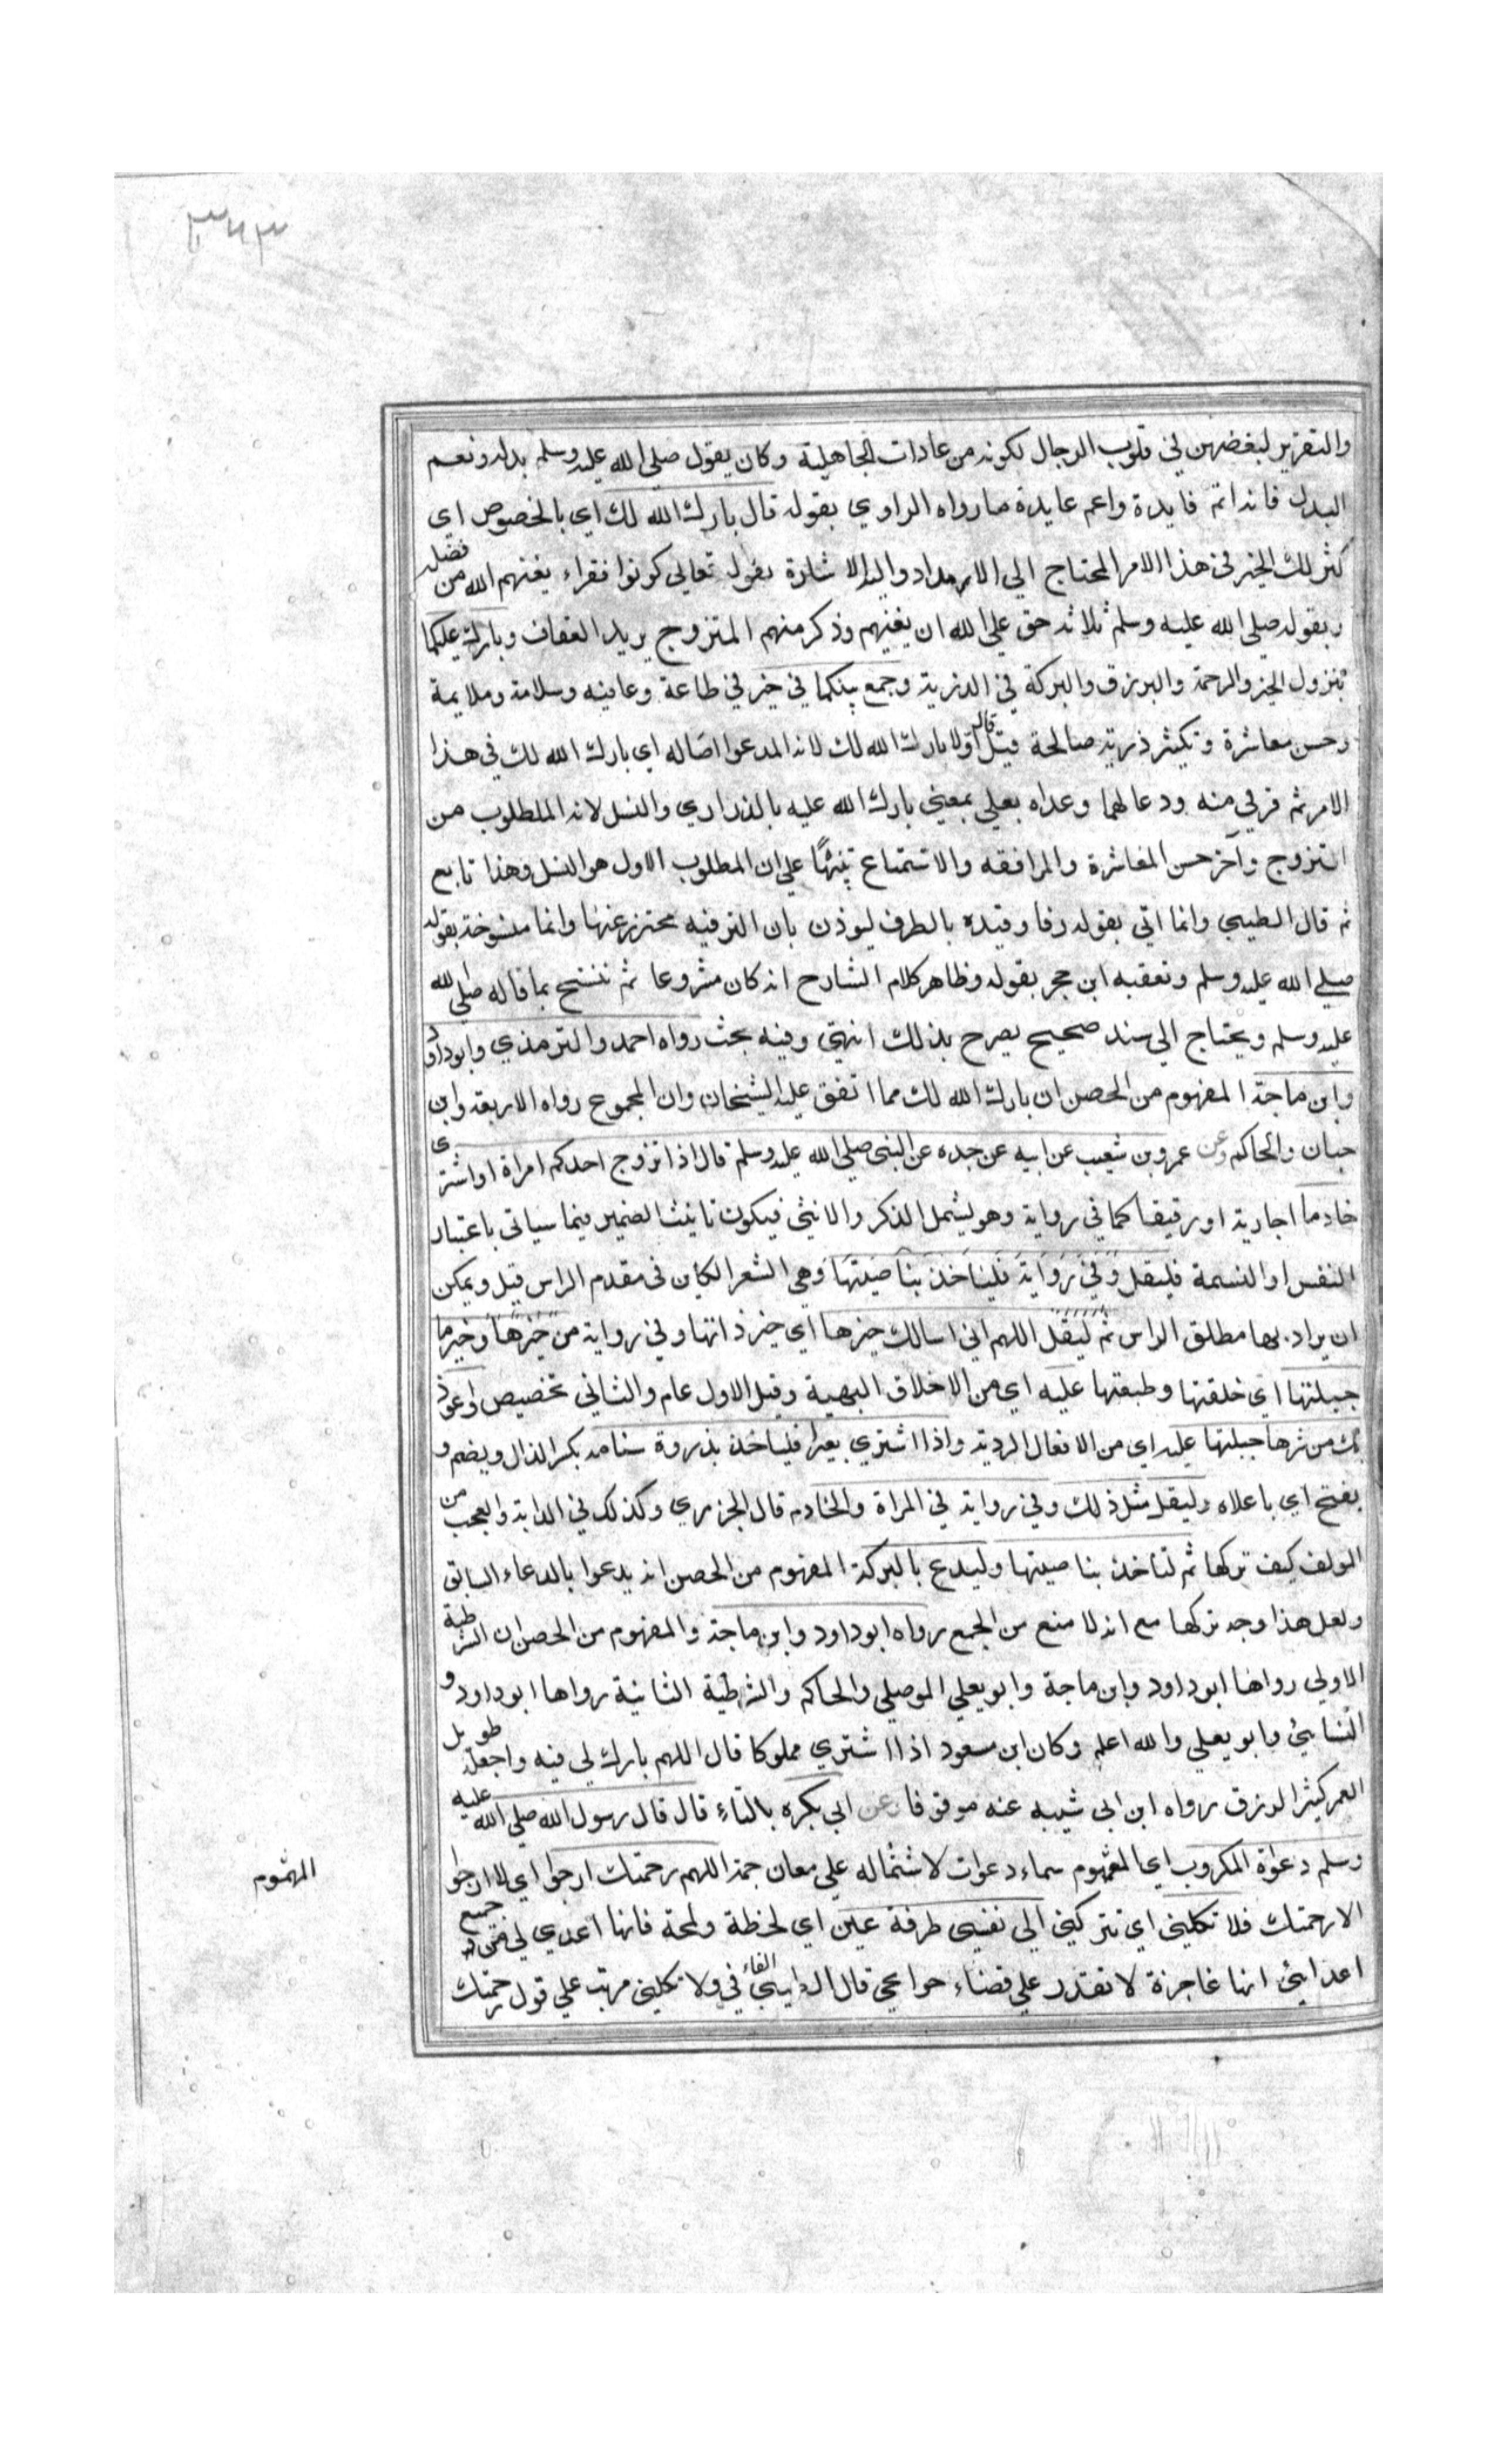 ٣٦٣
والتقرير لبغضهن في قلوب الرجال لكونه من عادات الجاهلية وكان يقول صلى الله عليه وسلم بدله ونعم
البدل فانه اتم فايدة واعم عايدة ما رواه الراوي بقوله قال بارك الله لك اي بالخصوص اي
كثر لك الخير في هذا الامر المحتاج الي الامداد واليه الاشارة بقوله تعالي كونوا فقراء يغنهم الله من فضله
وبقوله صلي الله عليه وسلم ثلاثة حق علي الله ان يغنيهم وذكر منهم المتزوج يريد العفاف وبارك عليكما
بنزول الخير والرحمة والبرزق والبركة في الذرية وجمع بينكما في خير في طاعة وعافيه وسلامة وملايمة
وحسن معاشرة وتكثير ذرية صالحة قيل قال اولا بارك الله لك لانه المدعوا اصاله اي بارك الله لك في هذا
الامر ثم قرفي منه ودعا لهما وعداه بعلي بمعني بارك الله عليه بالذراري والنسل لانه الملطلوب من
التزوج وآخر حسن المعاشرة والمرافقه والاستمتاع تنبيها علي ان المطلوب الاول هو النسل وهذا تابع
ثم قال الطيبي وانما اتي بقوله رفا وقيده بالظرف ليوذن بان الترفيه محترز عنها وانما منسوخة بقوله
صلي الله عليه وسلم وتعقبه ابن حجر بقوله وظاهر كلام الشارح انه كان مشروعا ثم ننسخ بما قاله صلي الله
عليه وسلم ويحتاج الي سند صحيح يصرح بذلك انتهي وفيه بحث رواه احمد والترمذي وابو داود
وابن ماجة المفهوم من الحصن ان بارك الله لك مما اتفق عليه الشيخان وان المجموع رواه الاربعة وابن
حبان والحاكم وعن عمرو بن شعيب عن ابيه عن جده عن النبي صلي الله عليه وسلم قال اذا تزوج احدكم امراة او اشتري
خادما اجارية او رقيقا كما في رواية وهو يشمل الذكر والانثي فيكون تانيث الضمير فيما سياتي باعتبار
النفس او النسمة فليقل وفي رواية فليناخذ بناصيتها وهي الشعر الكاين في مقدم الراس قيل ويمكن
ان يراد بها مطلق الراس ثم ليقل اللهم اني اسالك خيرها اي خير ذاتها وفي رواية من خيرها وخير ما
جبلتها اي خلقتها وطبعتها عليه اي من الاخلاق البهية وقيل الاول عام والثاني تخصيص واعوذ
بك من شرها جبلتها عليه اي من الافعال الردية واذا اشتري بعيرا فلياخذ بذروة سنامه بكسر الذال ويضم و
يفتح اي باعلاه وليقل مثل ذلك وفي رواية في المراة والخادم قال الجزري وكذلك في الدابة والعجب من
المولف كيف تركها ثم لتاخذ بناصيتها وليدع بالبركة المفهوم من الحصن انه يدعوا بالدعاء السابق
ولعل هذا وجه تركها مع انه لا منع من الجمع رواه ابو داود وابن ماجة والمفهوم من الحصن ان الشرطية
الاولي رواها ابو داود وابن ماجة وابو يعلي الموصلي والحاكم والشرطية الثانية رواها ابو داود و
النسايئ وابو يعلي والله اعلم وكان ابن مسعود اذا اشتري مملوكا قال اللهم بارك لي فيه واجعله طويل
العمر كثير الرزق رواه ابن ابي شيبه عنه موقوفا وعن ابي بكره بالتاء قال قال رسول الله صلي الله عليه
وسلم دعوة المكروب اي المغموم سماه دعوات لاشتماله علي معان جمة اللهم رحمتك ارجوا اي لا ارجوا
الا رحمتك فلا تكلني اي تتركني الي نفسي طرفة عين اي لحظة ولمحة فانها اعدي لي من جميع
اعدايئ انها عاجزة لا تقدر علي قضاء حوايجي قال الطيبي الفاء في ولا تكلني مرتب علي قول رحمتك
المهموم